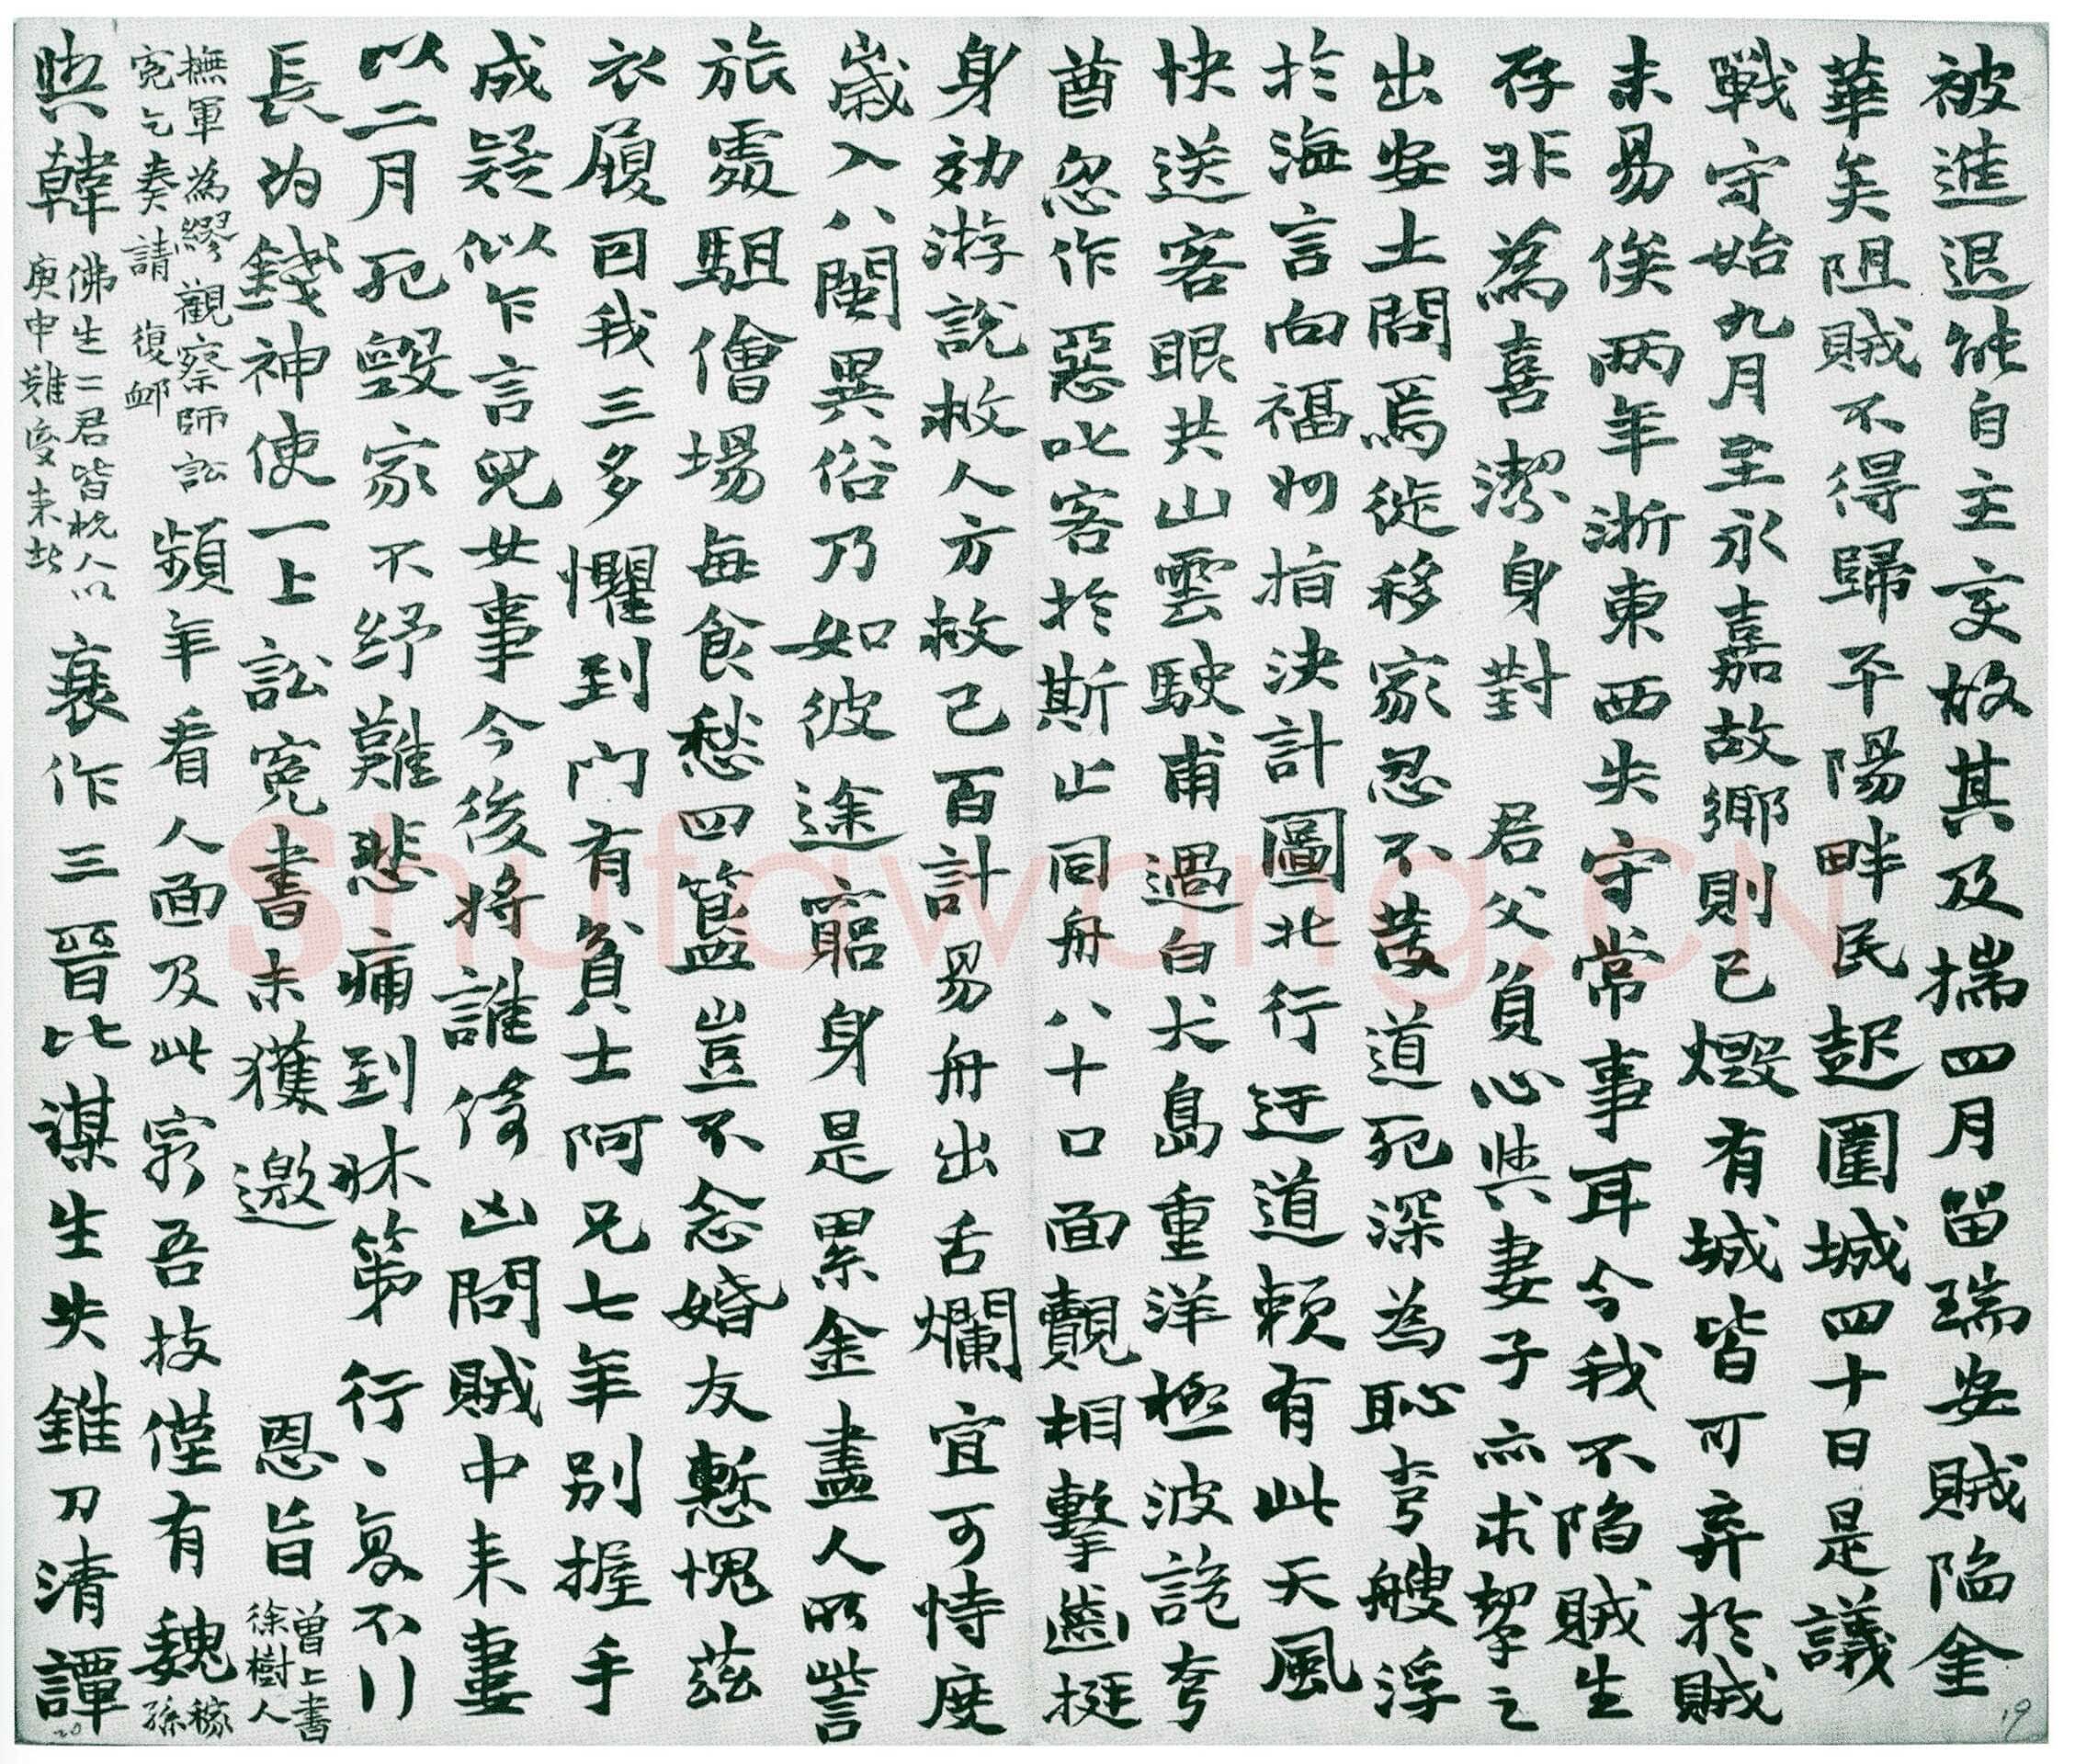 被進退能自主交放其及揣四月留瑞安賊陷金
華矣阻賊不得歸平陽畔民起圍城四十日是議
戰守始九月至永嘉故鄉則已燬有城皆可弃於賊
未易俟兩年浙東西失守常事耳今我不陷賊生
存非為喜潔身對 君父負心與妻子亦求挈之
出安土問焉徙移家忍不茇道死深為恥夸艘浮
於海言向福州指決計圖北行迂道賴有此天風
快送客眼共山雲駛甫過白犬島重洋極波詭夸
酋忽作惡叱客於斯止同舟八十口面覿相擊齒挺
身効游說救人方救己百計易舟出舌爛宜可恃度
歲入八閩異俗乃如彼途窮身是累金盡人所訾
旅處駔儈場每食愁四簋豈不念婚友慙愧茲
衣履回我三多懼到門有貧士阿兄七年別握手
成疑似乍言兒女事今後將誰倚凶問賊中来妻
以二月死毀家不紓難悲痛到牀第行、复不行
長為錢神使一上訟冤書未獲邀 恩旨 曾上書徐樹人
撫軍為繆觀察師訟冤乞奏請復卹 頻年看人面及此窮吾技僅有魏稼孫
與韓佛生二君皆杭人以庚申難後来此 衰作三晉比謀生失錐刀清譚
19
20
Shufawang.CN